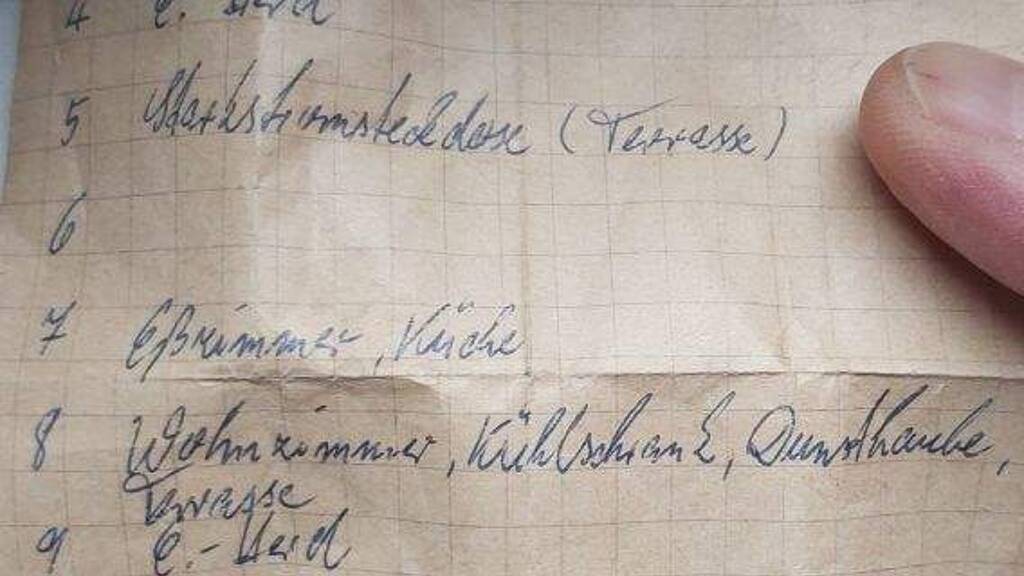 4 E.-Herd
5 Starkstromsteckdose (Terrasse)
6
7 Eßzimmer, Küche
8 Wohnzimmer, Kühlschrank, Dunsthaube,
Terrasse
9 E.-Herd